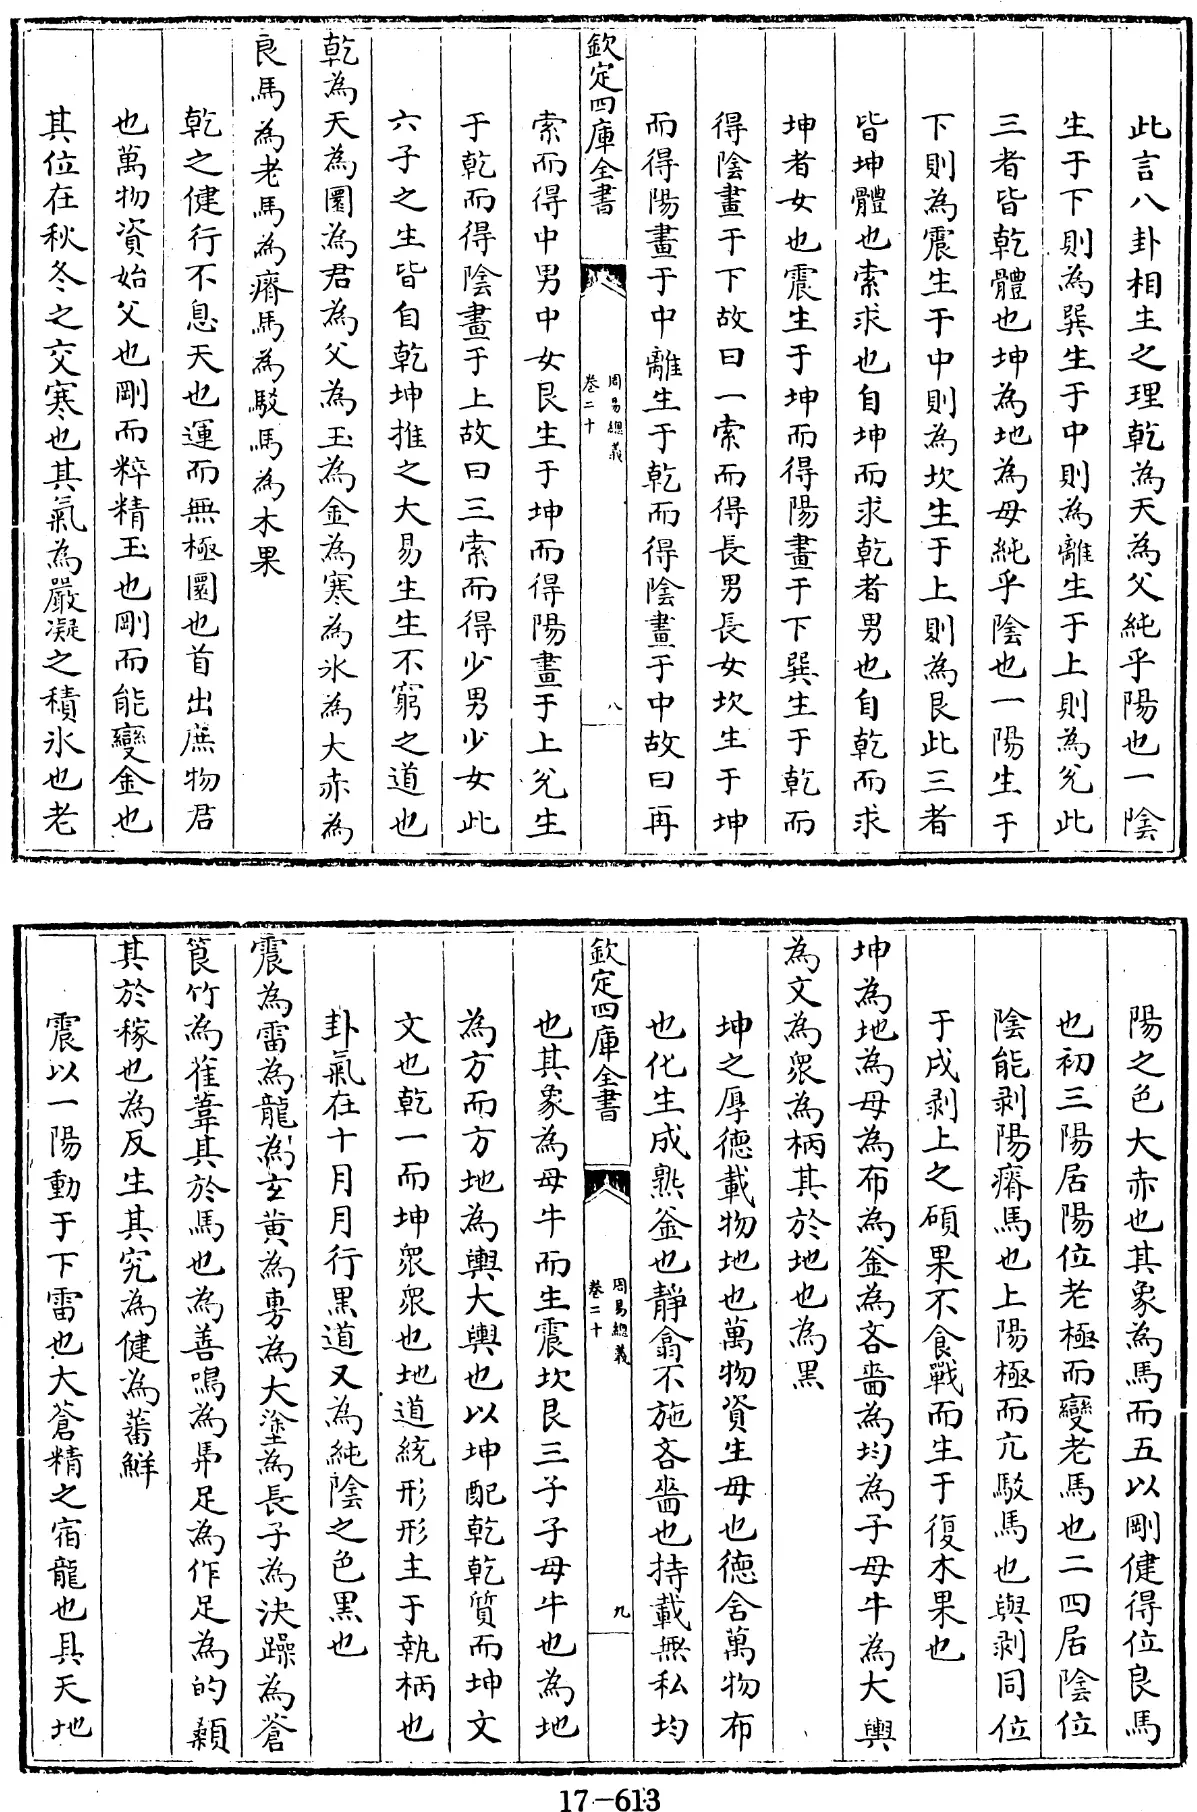 此言八卦相生之理乾為天為父純乎陽也一陰
生于下則為巽生于中則為離生于上則為兊此
三者皆乾體也坤為地為母純乎陰也一陽生于
下則為震生于中則為坎生于上則為艮此三者
皆坤體也索求也自坤而求乾者男也自乾而求
坤者女也震生于坤而得陽畫于下巽生于乾而
得陰畫于下故曰一索而得長男長女坎生于坤
而得陽畫于中離生于乾而得陰畫于中故曰再
欽定四庫全書
周易總義
卷二十
八
索而得中男中女艮生于坤而得陽畫于上兊生
于乾而得陰畫于上故曰三索而得少男少女此
六子之生皆自乾坤推之大易生生不窮之道也
乾為天為圜為君為父為玉為金為寒為氷為大赤為
良馬為老馬為瘠馬為駁馬為木果
乾之健行不息天也運而無極圜也首出庶物君
也萬物資始父也剛而粹精玉也剛而能變金也
其位在秋冬之交寒也其氣為嚴凝之積氷也老
陽之色大赤也其象為馬而五以剛健得位良馬
也初三陽居陽位老極而變老馬也二四居陰位
陰能剥陽瘠馬也上陽極而亢駁馬也與剥同位
于戌剥上之碩果不食戰而生于復木果也
坤為地為母為布為釜為吝嗇為均為子母牛為大輿
為文為衆為柄其於地也為黑
坤之厚德載物地也萬物資生母也德含萬物布
也化生成熟釜也靜翕不施吝嗇也持載無私均
欽定四庫全書
周易總義
卷二十
九
也其象為母牛而生震坎艮三子子母牛也為地
為方而方地為輿大輿也以坤配乾乾質而坤文
文也乾一而坤衆衆也地道統形形主于執柄也
卦氣在十月月行黒道又為純陰之色黒也
震為雷為龍為玄黄為旉為大塗為長子為決躁為蒼
筤竹為萑葦其於馬也為善鳴為馵足為作足為的顙
其於稼也為反生其究為健為蕃鮮
震以一陽動于下雷也大蒼精之宿龍也具天地
17-613